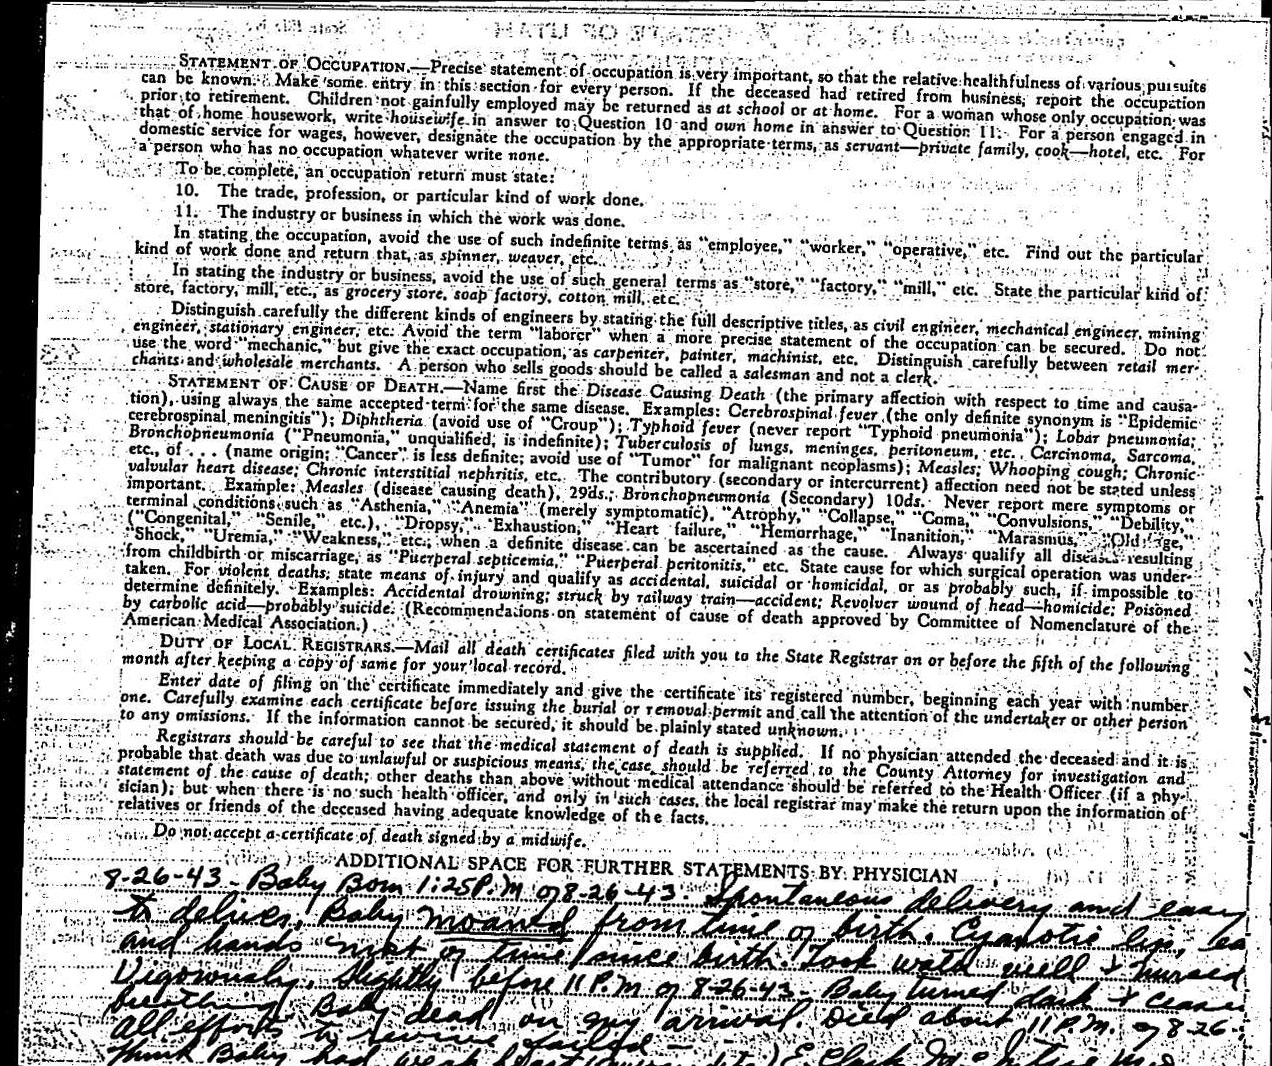 STATEMENT OF OCCUPATION.—Precise statement of occupation is very important, so that the relative healthfulness of various pursuits
can be known. Make some entry in this section for every person. If the deceased had retired from business, report the occupation
prior to retirement. Children not gainfully employed may be returned as at school or at home. For a woman whose only occupation was
that of home housework, write housewife in answer to Question 10 and own home in answer to Question 11. For a person engaged in
domestic service for wages, however, designate the occupation by the appropriate terms, as servant—private family, cook—hotel, etc. For
a person who has no occupation whatever write none.
To be complete, an occupation return must state:
10. The trade, profession, or particular kind of work done.
11. The industry or business in which the work was done.
In stating the occupation, avoid the use of such indefinite terms as "employee," "worker," "operative," etc. Find out the particular
kind of work done and return that, as spinner, weaver, etc.
In stating the industry or business, avoid the use of such general terms as "store," "factory," "mill," etc. State the particular kind of
store, factory, mill, etc., as grocery store, soap factory, cotton mill, etc.
Distinguish carefully the different kinds of engineers by stating the full descriptive titles, as civil engineer, mechanical engineer, mining
engineer, stationary engineer, etc. Avoid the term "laborer" when a more precise statement of the occupation can be secured. Do not
use the word "mechanic," but give the exact occupation, as carpenter, painter, machinist, etc. Distinguish carefully between retail mer-
chants and wholesale merchants. A person who sells goods should be called a salesman and not a clerk.
STATEMENT OF CAUSE OF DEATH.—Name first the Disease Causing Death (the primary affection with respect to time and causa-
tion), using always the same accepted term for the same disease. Examples: Cerebrospinal fever (the only definite synonym is "Epidemic
cerebrospinal meningitis"); Diphtheria (avoid use of "Croup"); Typhoid fever (never report "Typhoid pneumonia"); Lobar pneumonia;
Bronchopneumonia ("Pneumonia," unqualified, is indefinite); Tuberculosis of lungs, meninges, peritoneum, etc. Carcinoma, Sarcoma,
etc., of . . . (name origin; "Cancer" is less definite; avoid use of "Tumor" for malignant neoplasms); Measles; Whooping cough; Chronic
valvular heart disease; Chronic interstitial nephritis, etc. The contributory (secondary or intercurrent) affection need not be stated unless
important. Example: Measles (disease causing death), 29ds.; Bronchopneumonia (Secondary) 10ds. Never report mere symptoms or
terminal conditions such as "Asthenia," "Anemia" (merely symptomatic), "Atrophy," "Collapse," "Coma," "Convulsions," "Debility,"
("Congenital," "Senile," etc.), "Dropsy," "Exhaustion," "Heart failure," "Hemorrhage," "Inanition," "Marasmus," "Old age,"
"Shock," "Uremia," "Weakness," etc., when a definite disease can be ascertained as the cause. Always qualify all diseases resulting
from childbirth or miscarriage, as "Puerperal septicemia," "Puerperal peritonitis," etc. State cause for which surgical operation was under-
taken. For violent deaths; state means of injury and qualify as accidental, suicidal or homicidal, or as probably such, if impossible to
determine definitely. Examples: Accidental drowning; struck by railway train—accident; Revolver wound of head—homicide; Poisoned
by carbolic acid—probably suicide. (Recommendations on statement of cause of death approved by Committee of Nomenclature of the
American Medical Association.)
DUTY OF LOCAL REGISTRARS.—Mail all death certificates filed with you to the State Registrar on or before the fifth of the following
month after keeping a copy of same for your local record.
Enter date of filing on the certificate immediately and give the certificate its registered number, beginning each year with number
one. Carefully examine each certificate before issuing the burial or removal permit and call the attention of the undertaker or other person
to any omissions. If the information cannot be secured, it should be plainly stated unknown.
Registrars should be careful to see that the medical statement of death is supplied. If no physician attended the deceased and it is
probable that death was due to unlawful or suspicious means, the case should be referred to the County Attorney for investigation and
statement of the cause of death; other deaths than above without medical attendance should be referred to the Health Officer (if a phy-
sician); but when there is no such health officer, and only in such cases, the local registrar may make the return upon the information of
relatives or friends of the deceased having adequate knowledge of the facts.
Do not accept a certificate of death signed by a midwife.
ADDITIONAL SPACE FOR FURTHER STATEMENTS BY PHYSICIAN
8-26-43 - Baby Born 1:25 P.M of 8-26-43. Spontaneous delivery and easy
to deliver. Baby moaned from time of birth. Cyanotic lips,
and hands most of time since birth. Took water well & nursed
Vigorously. Slightly before 11 P.M of 8-26-43 - Baby turned dark &
breathing Baby dead on my arrival. Died about 11 P.M. of 8-26-
all efforts to revive failed -
think Baby had weak heart